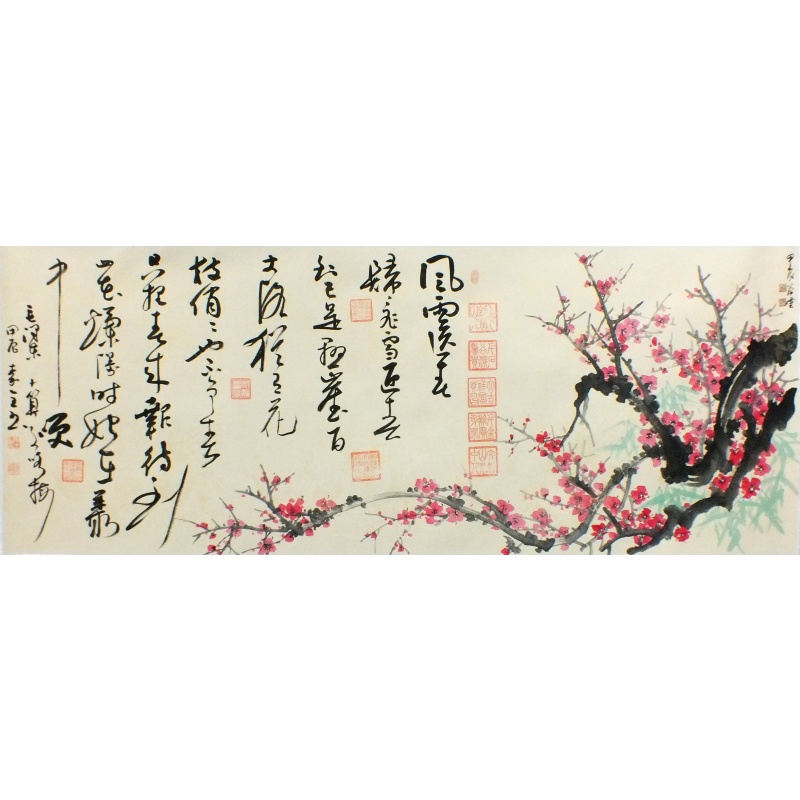 甲辰
風雨送春
歸飛雪迎春
到已是懸崖百
丈冰猶有花
枝俏〻也不爭春
只把春來報待到
山花爛漫時她在叢
中笑
毛澤東卜算子詠梅
甲辰李